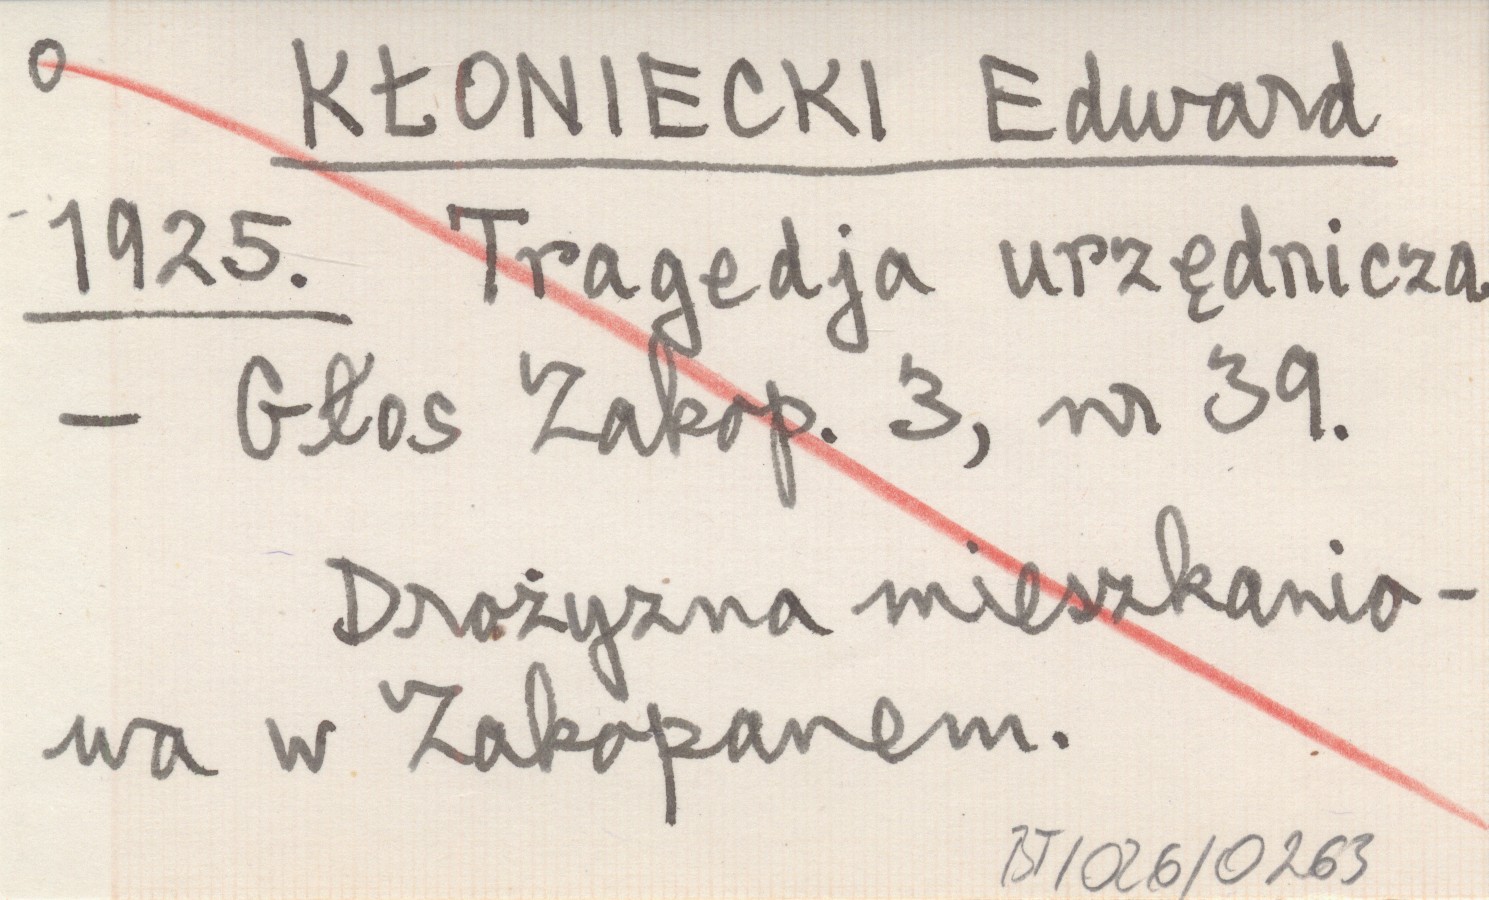 o KŁONIECKI Edward
1925. Tragedja urzędnicza.
— Głos Zakop. 3, nr 39.
Drożyzna mieszkanio-
wa w Zakopanem.
BT/026/0263